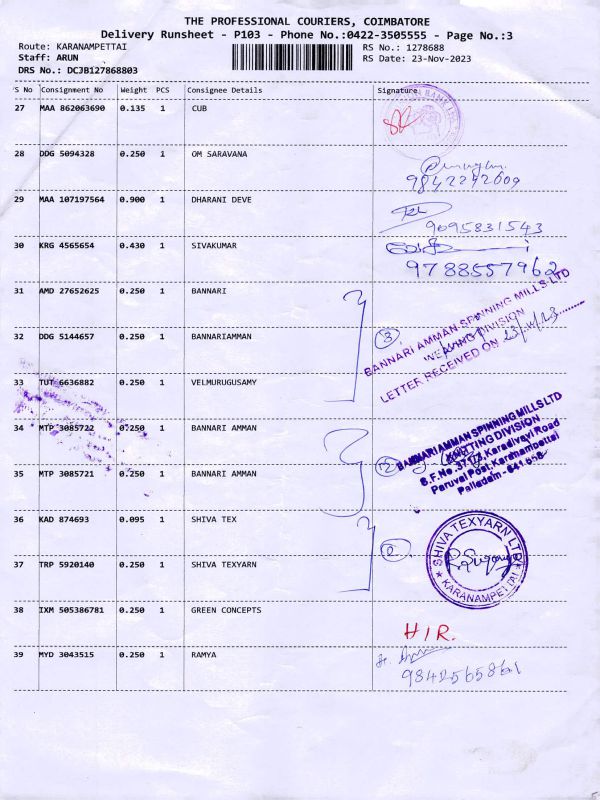 THE PROFESSIONAL COURIERS, COIMBATORE
Delivery Runsheet - P103 - Phone No.:0422-3505555 - Page No.:3
Route: KARANAMPETTAI RS No.: 1278688
Staff: ARUN RS Date: 23-Nov-2023
DRS No.: DCJB127868803
S No Consignment No Weight PCS Consignee Details Signature
27 MAA 862063690 0.135 1 CUB
28 DDG 5094328 0.250 1 OM SARAVANA
9842242609
29 MAA 107197564 0.900 1 DHARANI DEVE
9095831543
30 KRG 4565654 0.430 1 SIVAKUMAR
9788557962
31 AMD 27652625 0.250 1 BANNARI
32 DDG 5144657 0.250 1 BANNARIAMMAN
3
BANNARI AMMAN SPINNING MILLS LTD
WEAVING DIVISION
LETTER RECEIVED ON 23/11/23
33 TUT 6636882 0.250 1 VELMURUGUSAMY
34 MTP 3085722 0.250 1 BANNARI AMMAN
BANNARI AMMAN SPINNING MILLS LTD
KNITTING DIVISION
S.F.No. Karadivavi Road
Paruvai Post, Karanampettai
Palladam - 641 658
35 MTP 3085721 0.250 1 BANNARI AMMAN
36 KAD 874693 0.095 1 SHIVA TEX
37 TRP 5920140 0.250 1 SHIVA TEXYARN
SHIVA TEXYARN LTD
KARANAMPETTAI
38 IXM 505386781 0.250 1 GREEN CONCEPTS
HIR.
39 MYD 3043515 0.250 1 RAMYA
9842565861